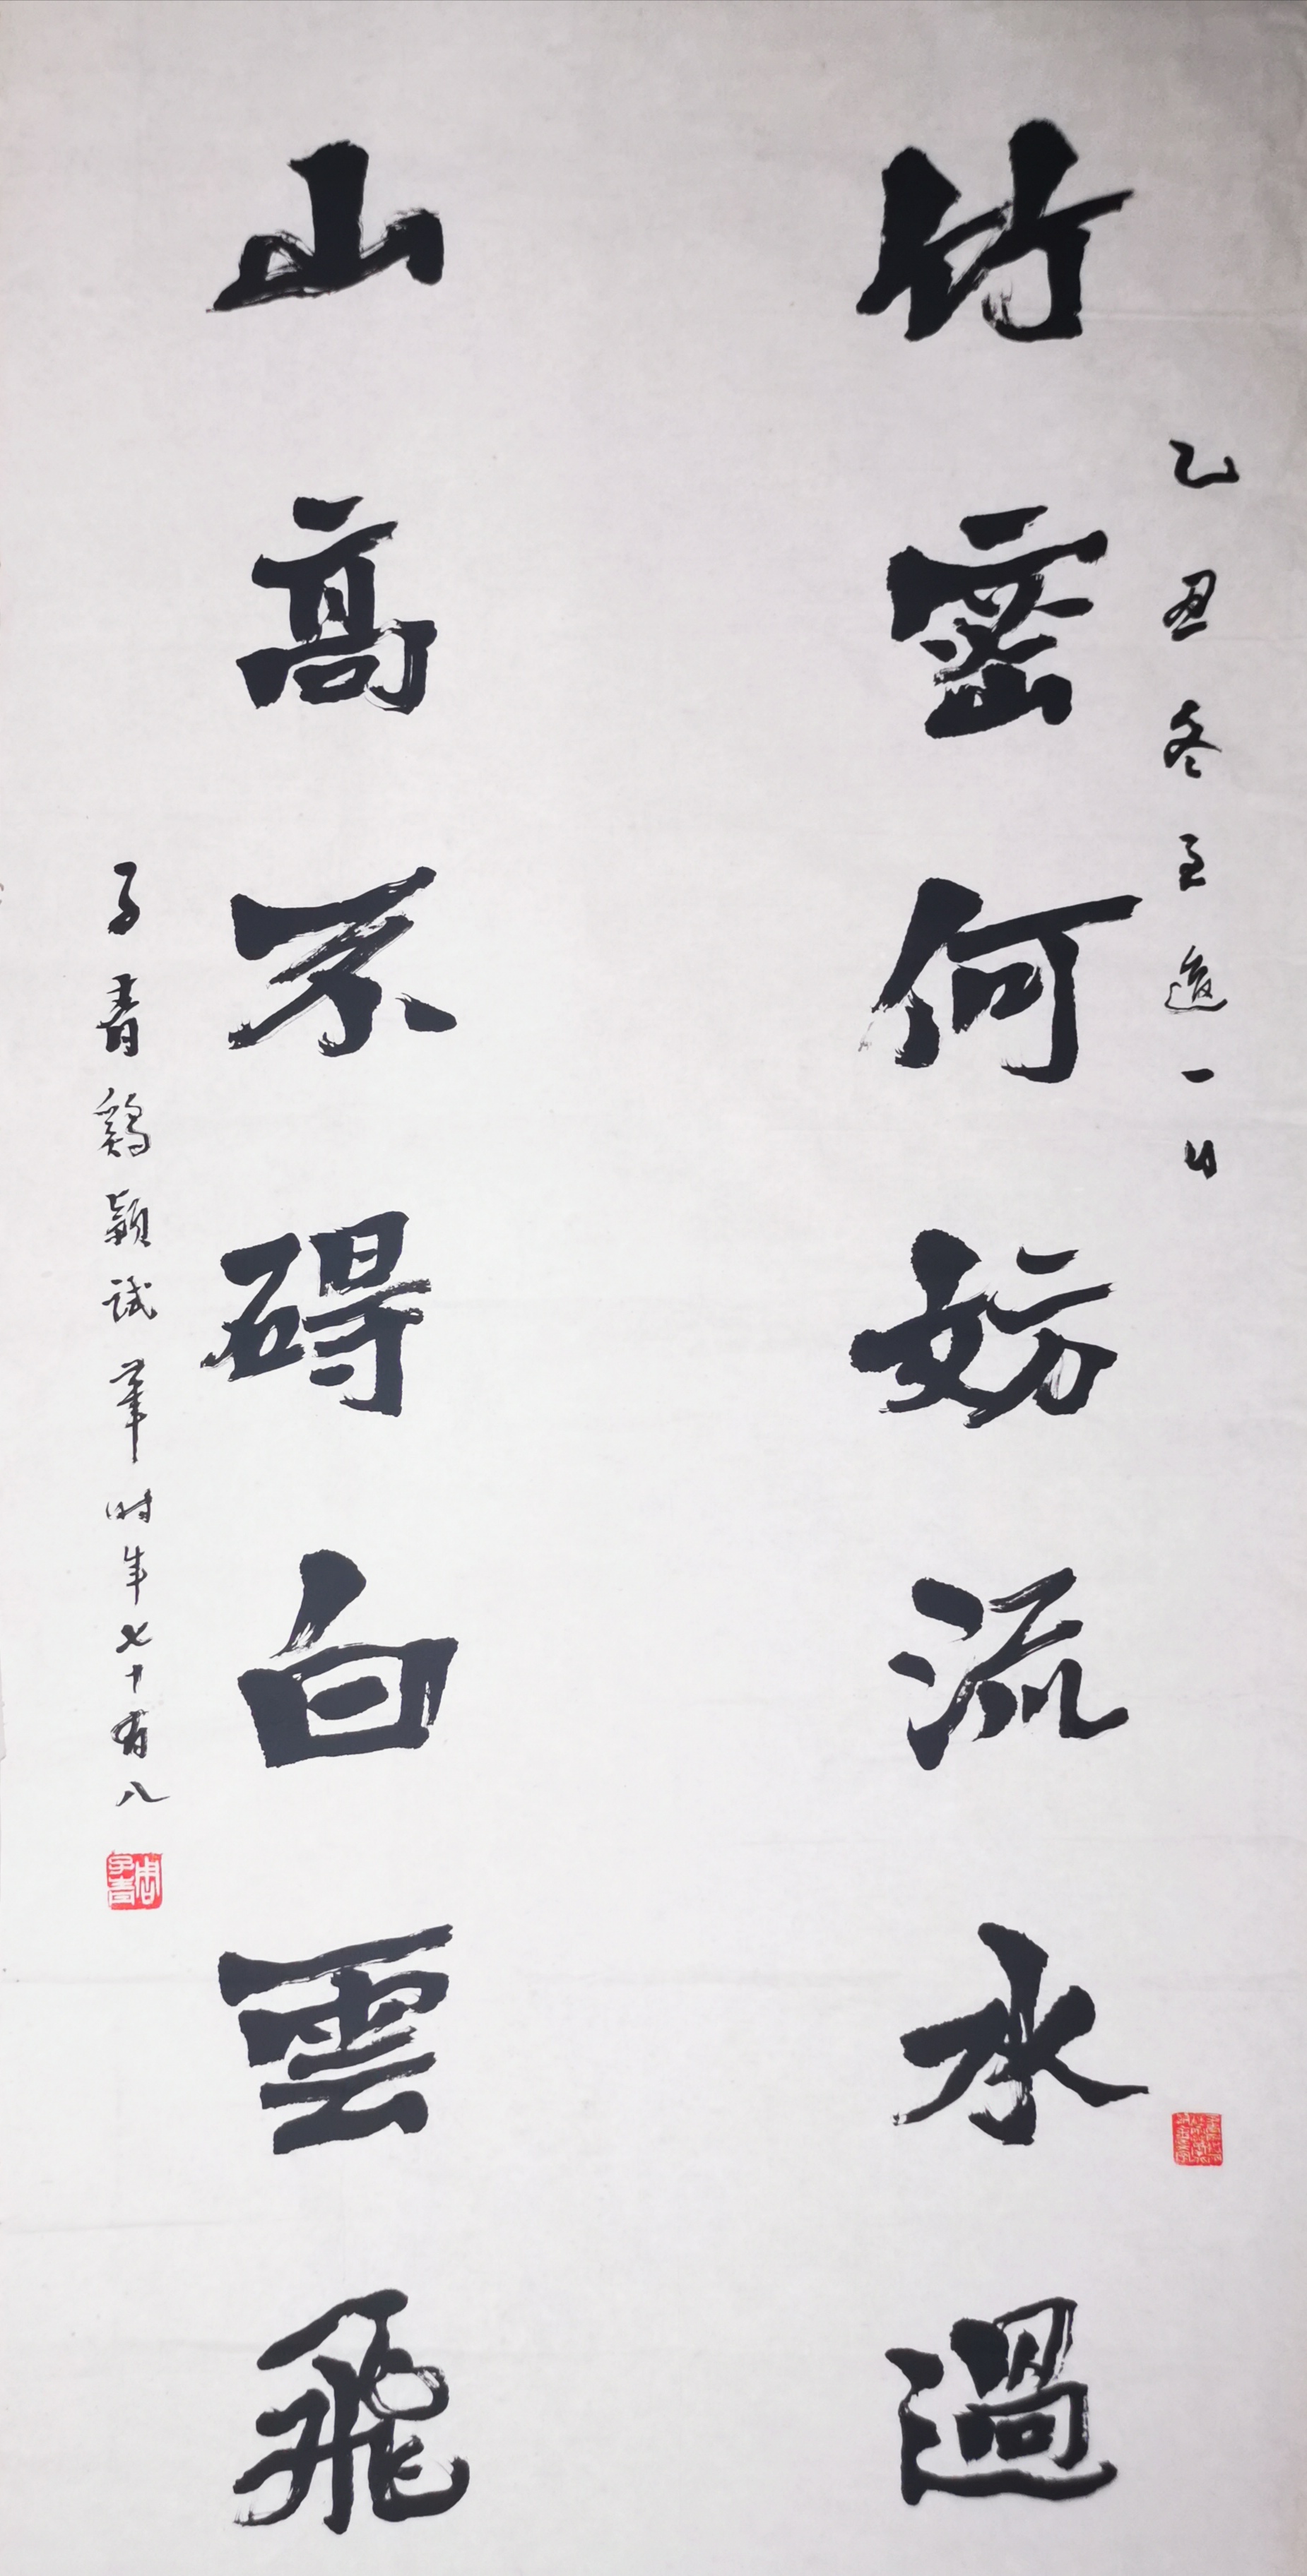 乙丑冬至後一日
竹密何妨流水過
山高不碍白雲飛
子青鷄穎試筆时年七十有八
周子青